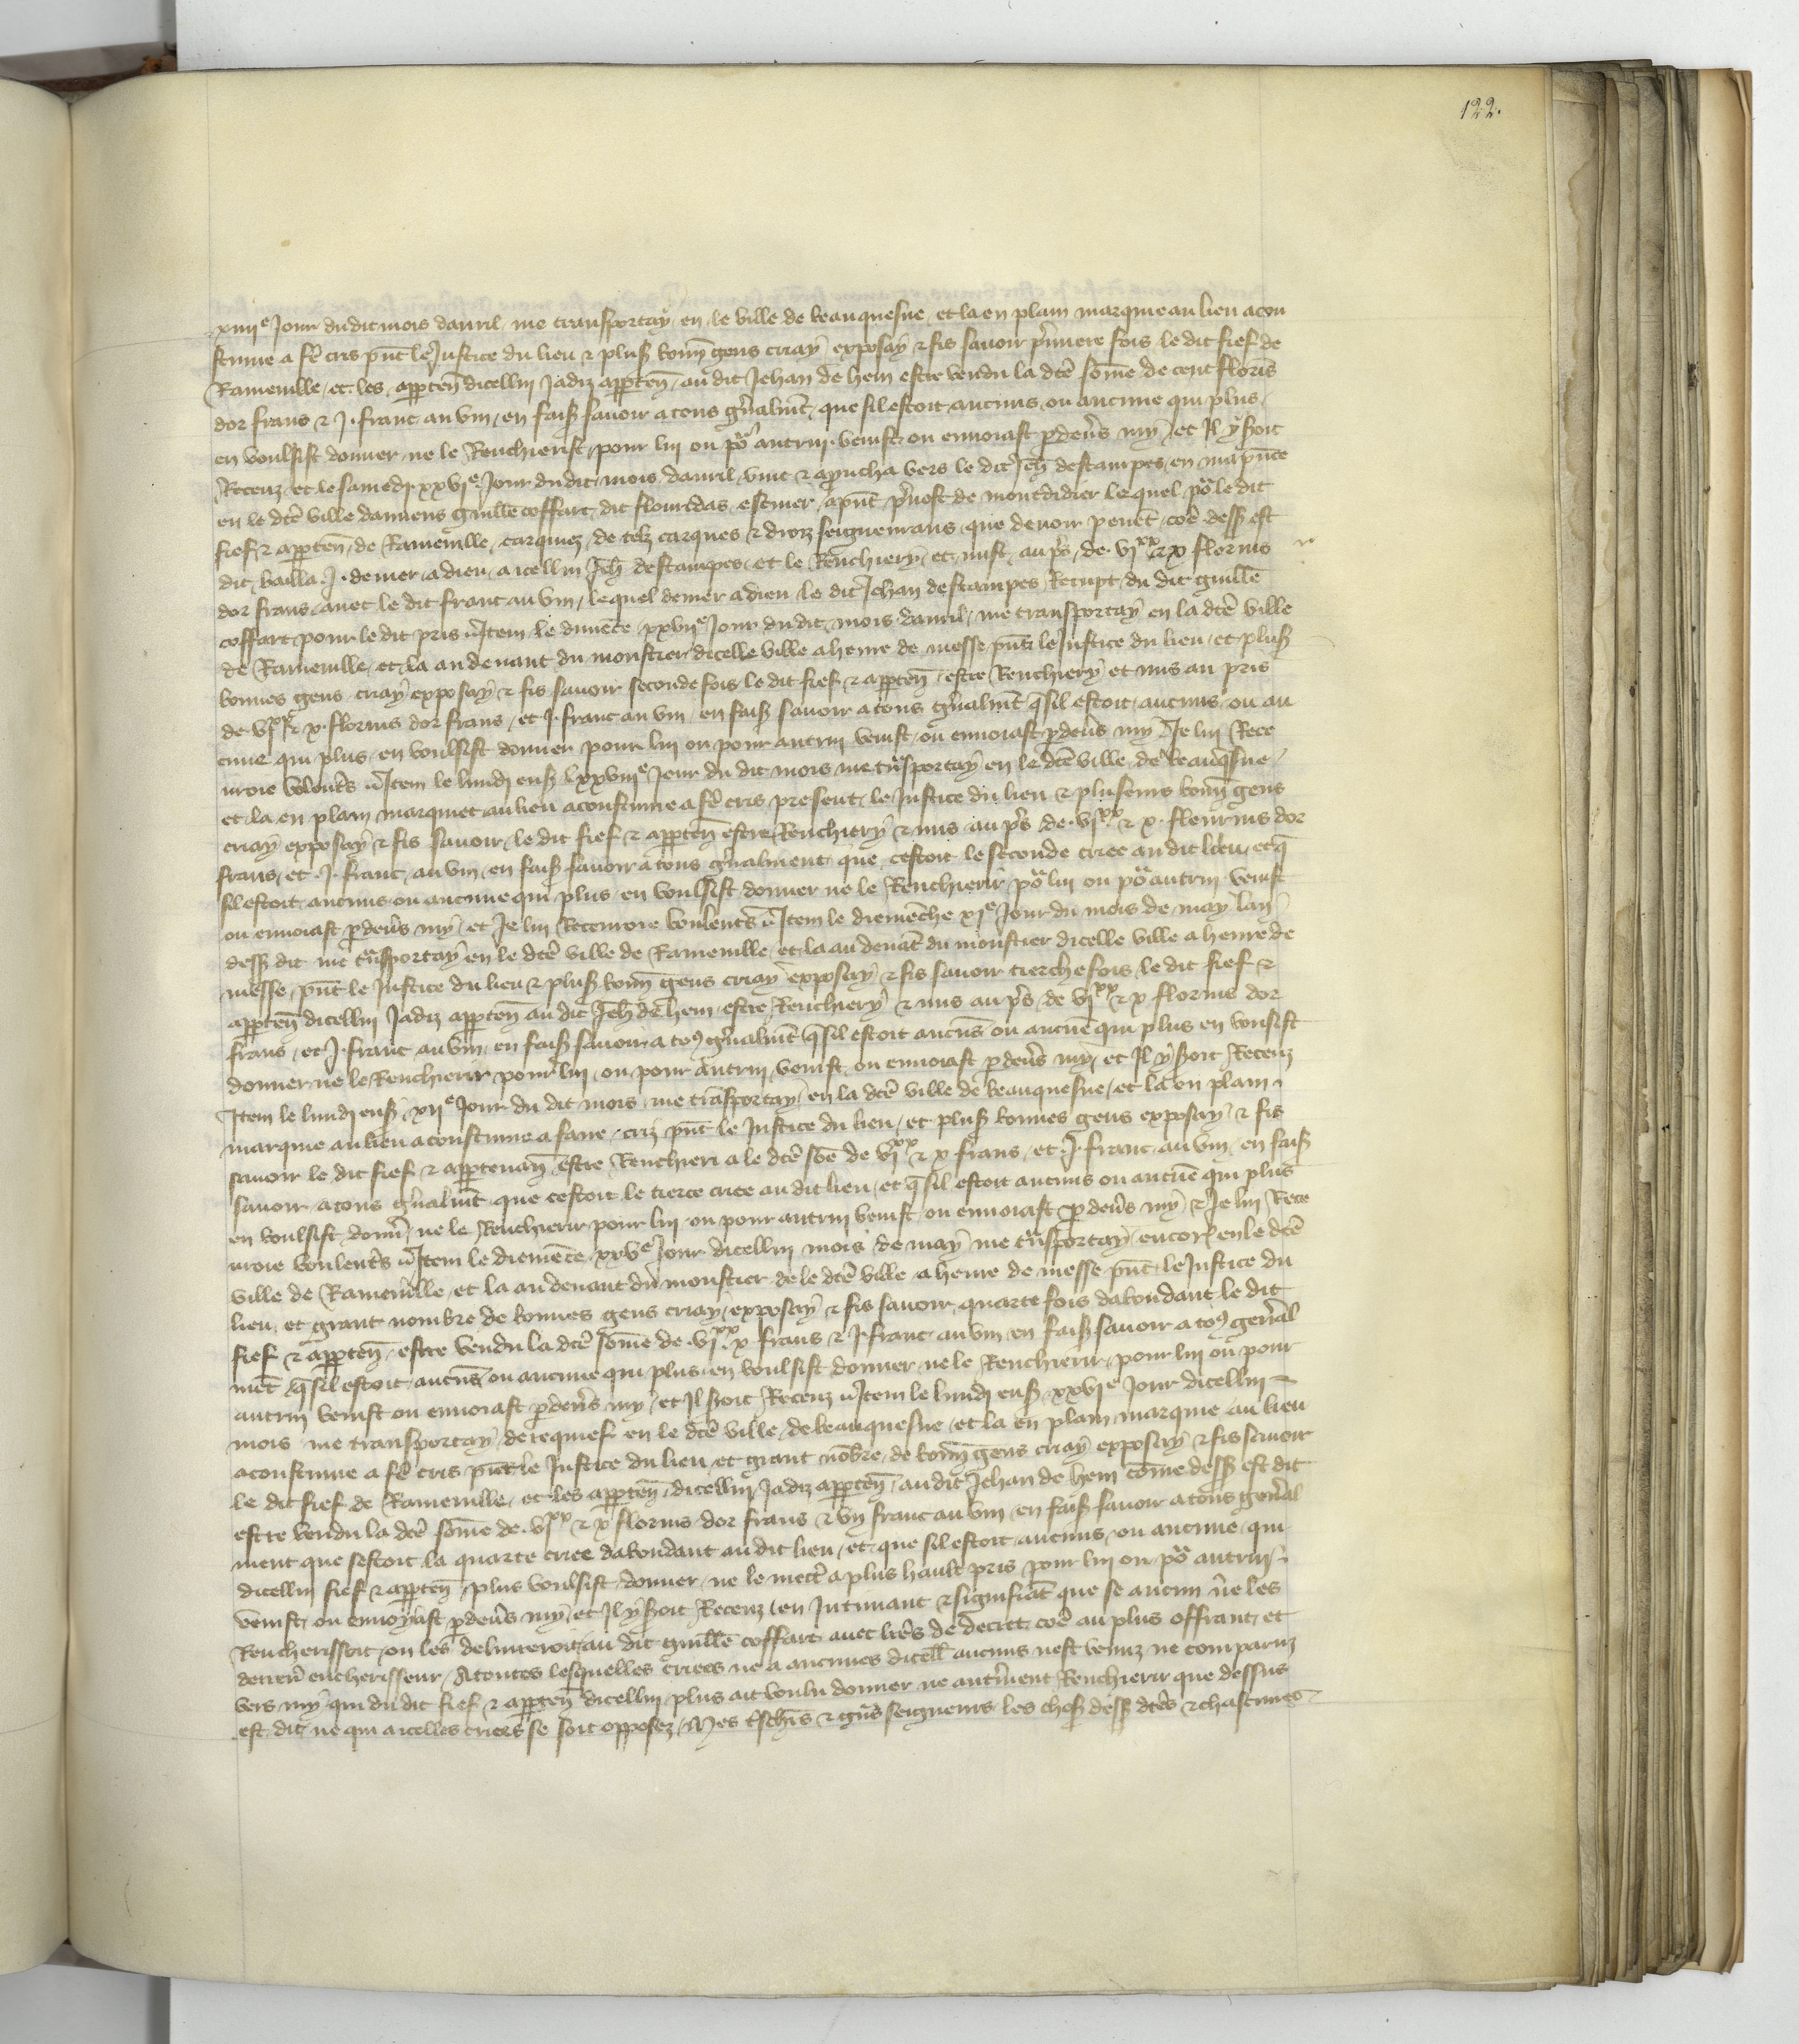 122.
xiiiie Jour dudit mois dauril me transportay en le ville de beauquesne et la en plain marquie au lieu acou
stume a fe cris pnt le Justice du lieu & pluss bonn gens criay exposay & fis sauoir prmiere fois le dit fief de
Rameuille et les apparten dicellui Jadiz apparten au dit Jehan de hem estre vendu la dte some de cent florins
dor frans & J. franc au vin en faiss sauoir a tous gnalmt que sil estoit aucuns ou aucune qui plus
en voulsist donner ne le Renchierist pour lui ou po autrui venist ou enuoiast pdeuers my et Il y seroit
Receuz et le samedi xxvie Jour du dit mois dauril vint & aprucha vers le dit Jeh destampes en ma pnce
en le dte ville damiens guille coffart dit flouridas escuier apnt preuost de mondidier lequel po le dit
fief & apparten de Rameuille carquiez de telz carques & droiz seigneuraus que deuoir peuet coe dess est
dit bailla J. denier a dieu a icellui Jeh destampes et le Renchiery et mist au prs de vixx & x florins
dor frans auec le dit franc au vin lequel denier a dieu le dit Jehan destampes Recupt du dit guille
coffart pour le dit pris Item le dimence xxviie Jour du dit mois dauril me transportay en la dte ville
de Rameuille et la au deuant du moustier dicelle ville a heure de messe pnt le Justice du lieu et pluss
bonnes gens criay exposay & fis sauoir seconde fois le dit fief & apparten estre Renchiery et mis au pris
de vixx & x florins dor frans et J. franc au vin en faiss sauoir a tous gnalmt q sil estoit aucuns ou au
cune qui plus en voulsist donner pour lui ou pour autrui venist ou enuoiast pdeuers my Je lui Rece
uroie volentrs Item le lundi enss xxviiie Jour du dit mois me trnsportay en le dte ville de beauqsne
et la en plain marquiet au lieu acoustume a fe cris present le Justice du lieu & pluseurs bonn gens
criay exposay & fis sauoir le dit fief & apparten estre Renchiery & mis au prs de vixx & x flourins dor
frans et J. franc au vin en faiss sauoir a tous gnalment que cestoit le seconde criee au dit lieu et q
sil estoit aucuns ou aucune qui plus en voulsist donner ne le Renchierir po lui ou po autrui venist
ou enuoiast pdeuers my et Je lui Receuroie voulentrs Item le diemenche xie Jour du mois de may lan
dess dit me trnsportay en le dte ville de Rameuille et la au deuat du moustier dicelle ville a heure de
messe pnt le Justice du lieu & pluss bonn gens criay exposay & fis sauoir tierche fois le dit fief &
apparten dicellui Jadiz apparten au dit Jeh de hem estre Renchiery & mis au prs de vixx & x florins dor
frans et J. franc au vin en faiss sauoir a to9 gnalmt q sil estoit aucuns ou aucue qui plus en vousist
donner ne le Renchierir pour lui ou pour autrui venist ou enuoiast pdeuers my et Il y seroit Receuz
Item le lundi enss xiie Jour du dit mois me trasportay en la dte ville de beauquesne et la en plain
marquie au lieu acoustume a faire criz pnt le Justice du lieu et pluss bonnes gens exposay & fis
sauoir le dit fief & appartenan estre Renchieri a le dte soe de vixx & x frans et J. franc au vin en faiss
sauoir a tous gnalmt que cestoit le tierce criee au dit lieu et q sil estoit aucuns ou aucue qui plus
en voulsist donnr ne le Renchierir pour lui ou pour autrui venist ou enuoiast pdeuers my & Je lui Rece
uroie voulentrs Item le diemece xxve Jour dicellui mois de may me trnsportay encor en le dte
ville de Rameuille et la au deuant du moustier de le dte ville a heure de messe pnt le Justice du
lieu et grant nombre de bonnes gens criay exposay & fis sauoir quarte fois dabondant le dit
fief & apparten estre vendu la dte some de vixx x frans & J. franc au vin en faiss sauoir a to9 genral
met q sil estoit aucuns ou aucune qui plus en voulsist donner ne le Renchierir pour lui ou pour
autrui venist ou enuoiast pdeuers my et Il seroit Receuz Item le lundi enss xxvie Jour dicellui
mois me transportay derequief en le dte ville de beauquesne et la en plain marquie au lieu
acoustume a fe cris pnt le Justice du lieu et grant nobre de bonn gens criay exposay & fis sauoir
le dit fief de Rameuille et les apparten dicellui Jadiz apparten au dit Jehan de hem come dess est dit
estre vendu la dte some de vixx & x florins dor frans & vn franc au vin en faiss sauoir a tous genral
ment que sestoit la quarte criee dabondant au dit lieu et que sil estoit aucuns ou aucune qui
dicellui fief & apparten plus voulsist donner ne le mectr a plus hault pris pour lui ou po autrui
venist ou enuoyast pdeuers my et Il y seroit Receuz en Intimant & signifiat que se aucun ne les
Rencherissoit on les deliureroit au dit guille coffart auec lres de decret coe au plus offrant et
derreir encherisseur A toutes lesquelles criees ne a aucunes dicell aucuns nest venuz ne comparuz
vers my qui du dit fief & apparten dicellui plus ait voulu donner ne autrment Renchierir que dessus
est dit ne qui a icelles criees se soit opposez Mes tschrs & gnds seigneurs les choss dess dtes & chascunes